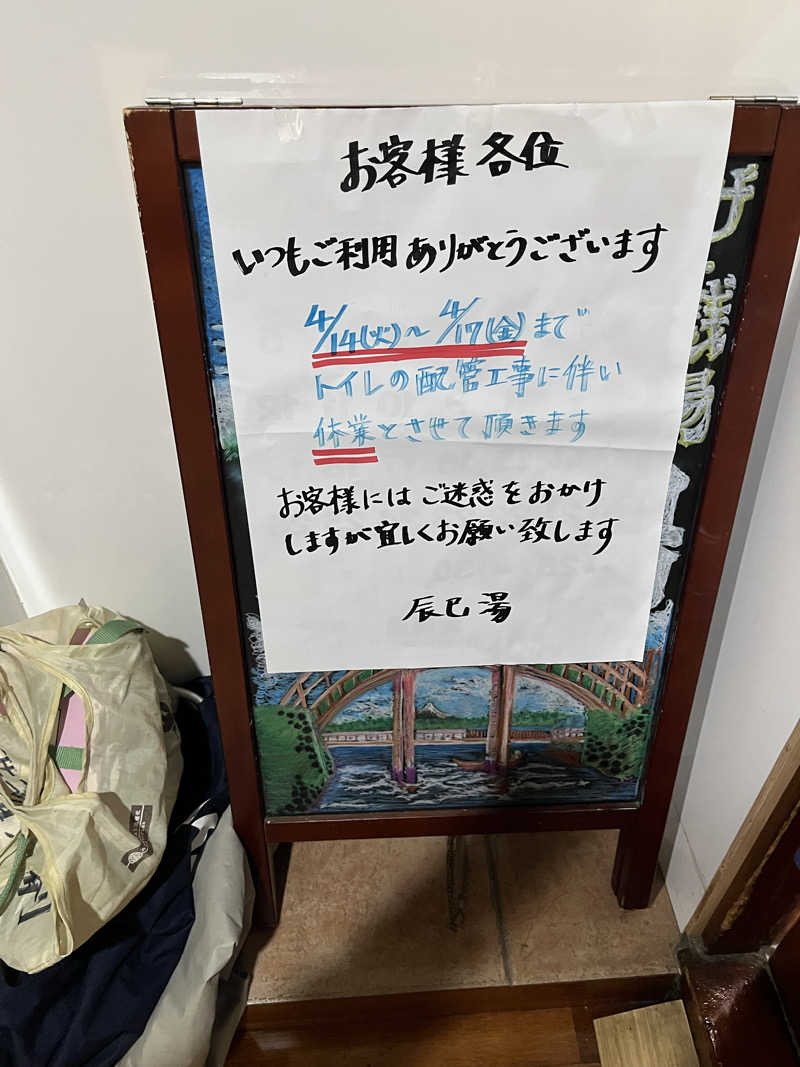 お客様各位
いつもご利用ありがとうございます
4/14(火)～4/17(金)まで
トイレの配管工事に伴い
休業とさせて頂きます
お客様にはご迷惑をおかけ
しますが宜しくお願い致します
辰巳湯